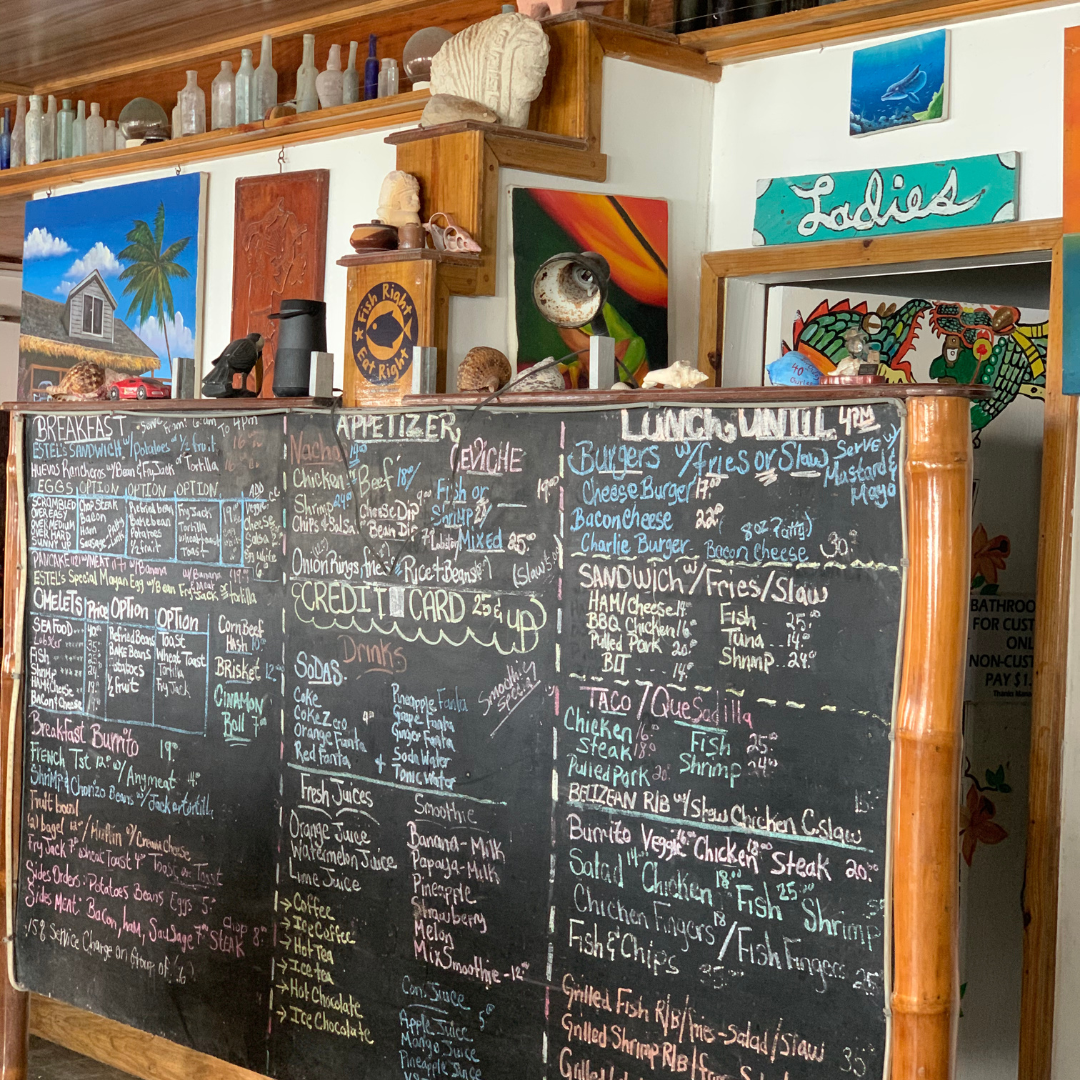 Ladies
Fish Right
Eat Right
40
BREAKFAST "Sun" from 6am To 4pm
ESTEL'S SANDWICH w/ Potatoes or 1/2 fruit
HUEVOS Rancheros w/Bean & FryJack or Tortilla
EGGS OPTION OPTION OPTION ADD
SCRAMBLED Chop STEAK Refried bean Fry Jack
OVER EASY Bacon Bakebean Tortilla Cheese
OVER MEDIUM Ham Potatoes Wheat toast
OVER HARD Sausage 1/2 fruit Toast
SUNNY UP
ESTEL'S Special Mayan Egg w/Bean FryJack or Tortilla
OMELETS Price Option OPTION
SEAFOOD Refried Beans Toast
Lobster Bake Beans Wheat Toast
Fish Potatoes Tortilla
Shrimp 1/2 fruit Fry Jack
HAM & Cheese
BACON & Cheese
Corn Beef
Hash
BRisket 12
CINAMON
Roll
Breakfast Burrito 19
FRENCH Tst 12 w/ Any meat 4
Shrimp & Chorizo Beans w/ Jack or tortill
Fruit bowl
(a) bagel w/ Cream Cheese
Fry Jack 7 Wheat Toast 4
Sides Orders: Potatoes Beans Eggs 5
Sides Meat: Bacon, ham, Sausage 7 Chop STEAK 8
15% Service Charge on Group of (6)
APPETIZER
Nacho
Chicken Beef 18
Shrimp 24 Cheese Dip
Chips & Salsa Bean Dip
CEVICHE
Fish or 19
Shrimp
+ Lobster Mixed 25
Onion Rings fries Rice + Beans (Slaw
CREDIT CARD 25 & UP
Drinks
SODAS
Coke
Coke Zero
Orange Fanta
Red Fanta
Pineapple Fanta
Grape Fanta
Ginger Fanta
Soda Water
+ Tonic Water
Smoothie
Special
Fresh Juices
Orange Juice
Watermelon Juice
Lime Juice
→ Coffee
→ Ice Coffee
→ Hot Tea
→ Ice tea
→ Hot Chocolate
→ Ice Chocolate
Smoothie
Banana - Milk
Papaya - Milk
Pineapple
Strawberry
Melon
Mix Smoothie - 12
Can Juice
Apple Juice 5
Mango Juice
Pineapple Juice
LUNCH UNTIL 4PM
Burgers w/fries or Slaw Serve w/
Mustard &
Mayo
Cheese Burger 17
Bacon Cheese 22
8oz Patty)
Charlie Burger Bacon Cheese 30
SANDWICH w/Fries/Slaw
HAM/Cheese 14 Fish 25
BBQ Chicken 16 Tuna 14
Pulled Pork 20 Shrimp 24
BLT 14
TACO / QUESADILLA
Chicken 16 Fish 25
Steak 18 Shrimp 24
Pulled Pork 20
BELIZEAN R/B w/ Stew Chicken C.slaw
Burrito Veggie 16 Chicken 18 Steak 20
Salad 14 Chicken 18 Fish 25 Shrimp
Chicken Fingers 18 / Fish Fingers 25
Fish & Chips 35
Grilled Fish R/B/fries-Salad/Slaw 35
Grilled Shrimp R/B/
Grilled
BATHROO
FOR CUST
ONL
NON-CUST
PAY $1.